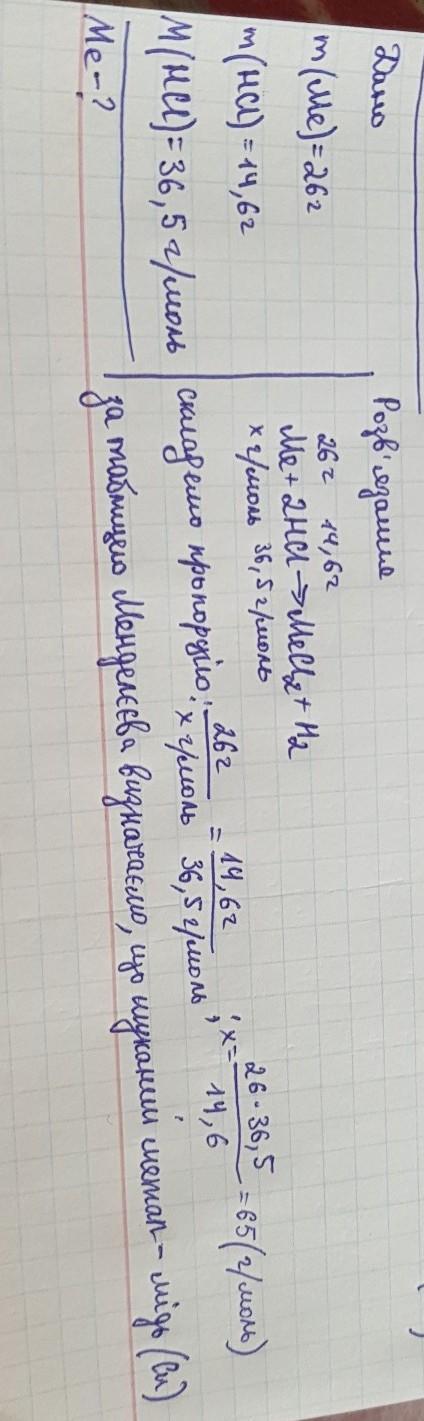 Дано
m(Me)=26г
m(HCl)=14,6г
M(HCl)=36,5 г/моль
Me-?
Розв'язання
26г 14,6г
Me+2HCl→MeCl₂+H₂
x г/моль 36,5 г/моль
складемо пропорцію: 26г / x г/моль = 14,6г / 36,5 г/моль ; x= 26·36,5 / 14,6 =65(г/моль)
за таблицею Менделєєва визначаємо, що шуканий метал - мідь (Cu)